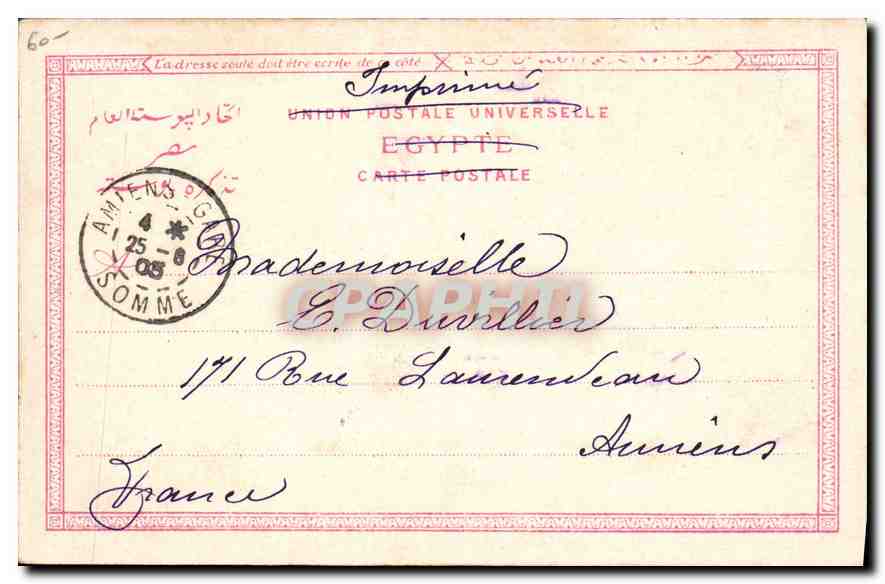 60-
La adresse seule doit être écrite de ce côté
Imprimé
UNION POSTALE UNIVERSELLE
اتحاد البوستة العام
EGYPTE
مصر
CARTE POSTALE
تذكرة بوستة
AMIENS GARE
4 *
25 - 8
03
SOMME
Mademoiselle
CPARHTI
E. Duvillier
171 Rue Laurendeau
Amiens
France